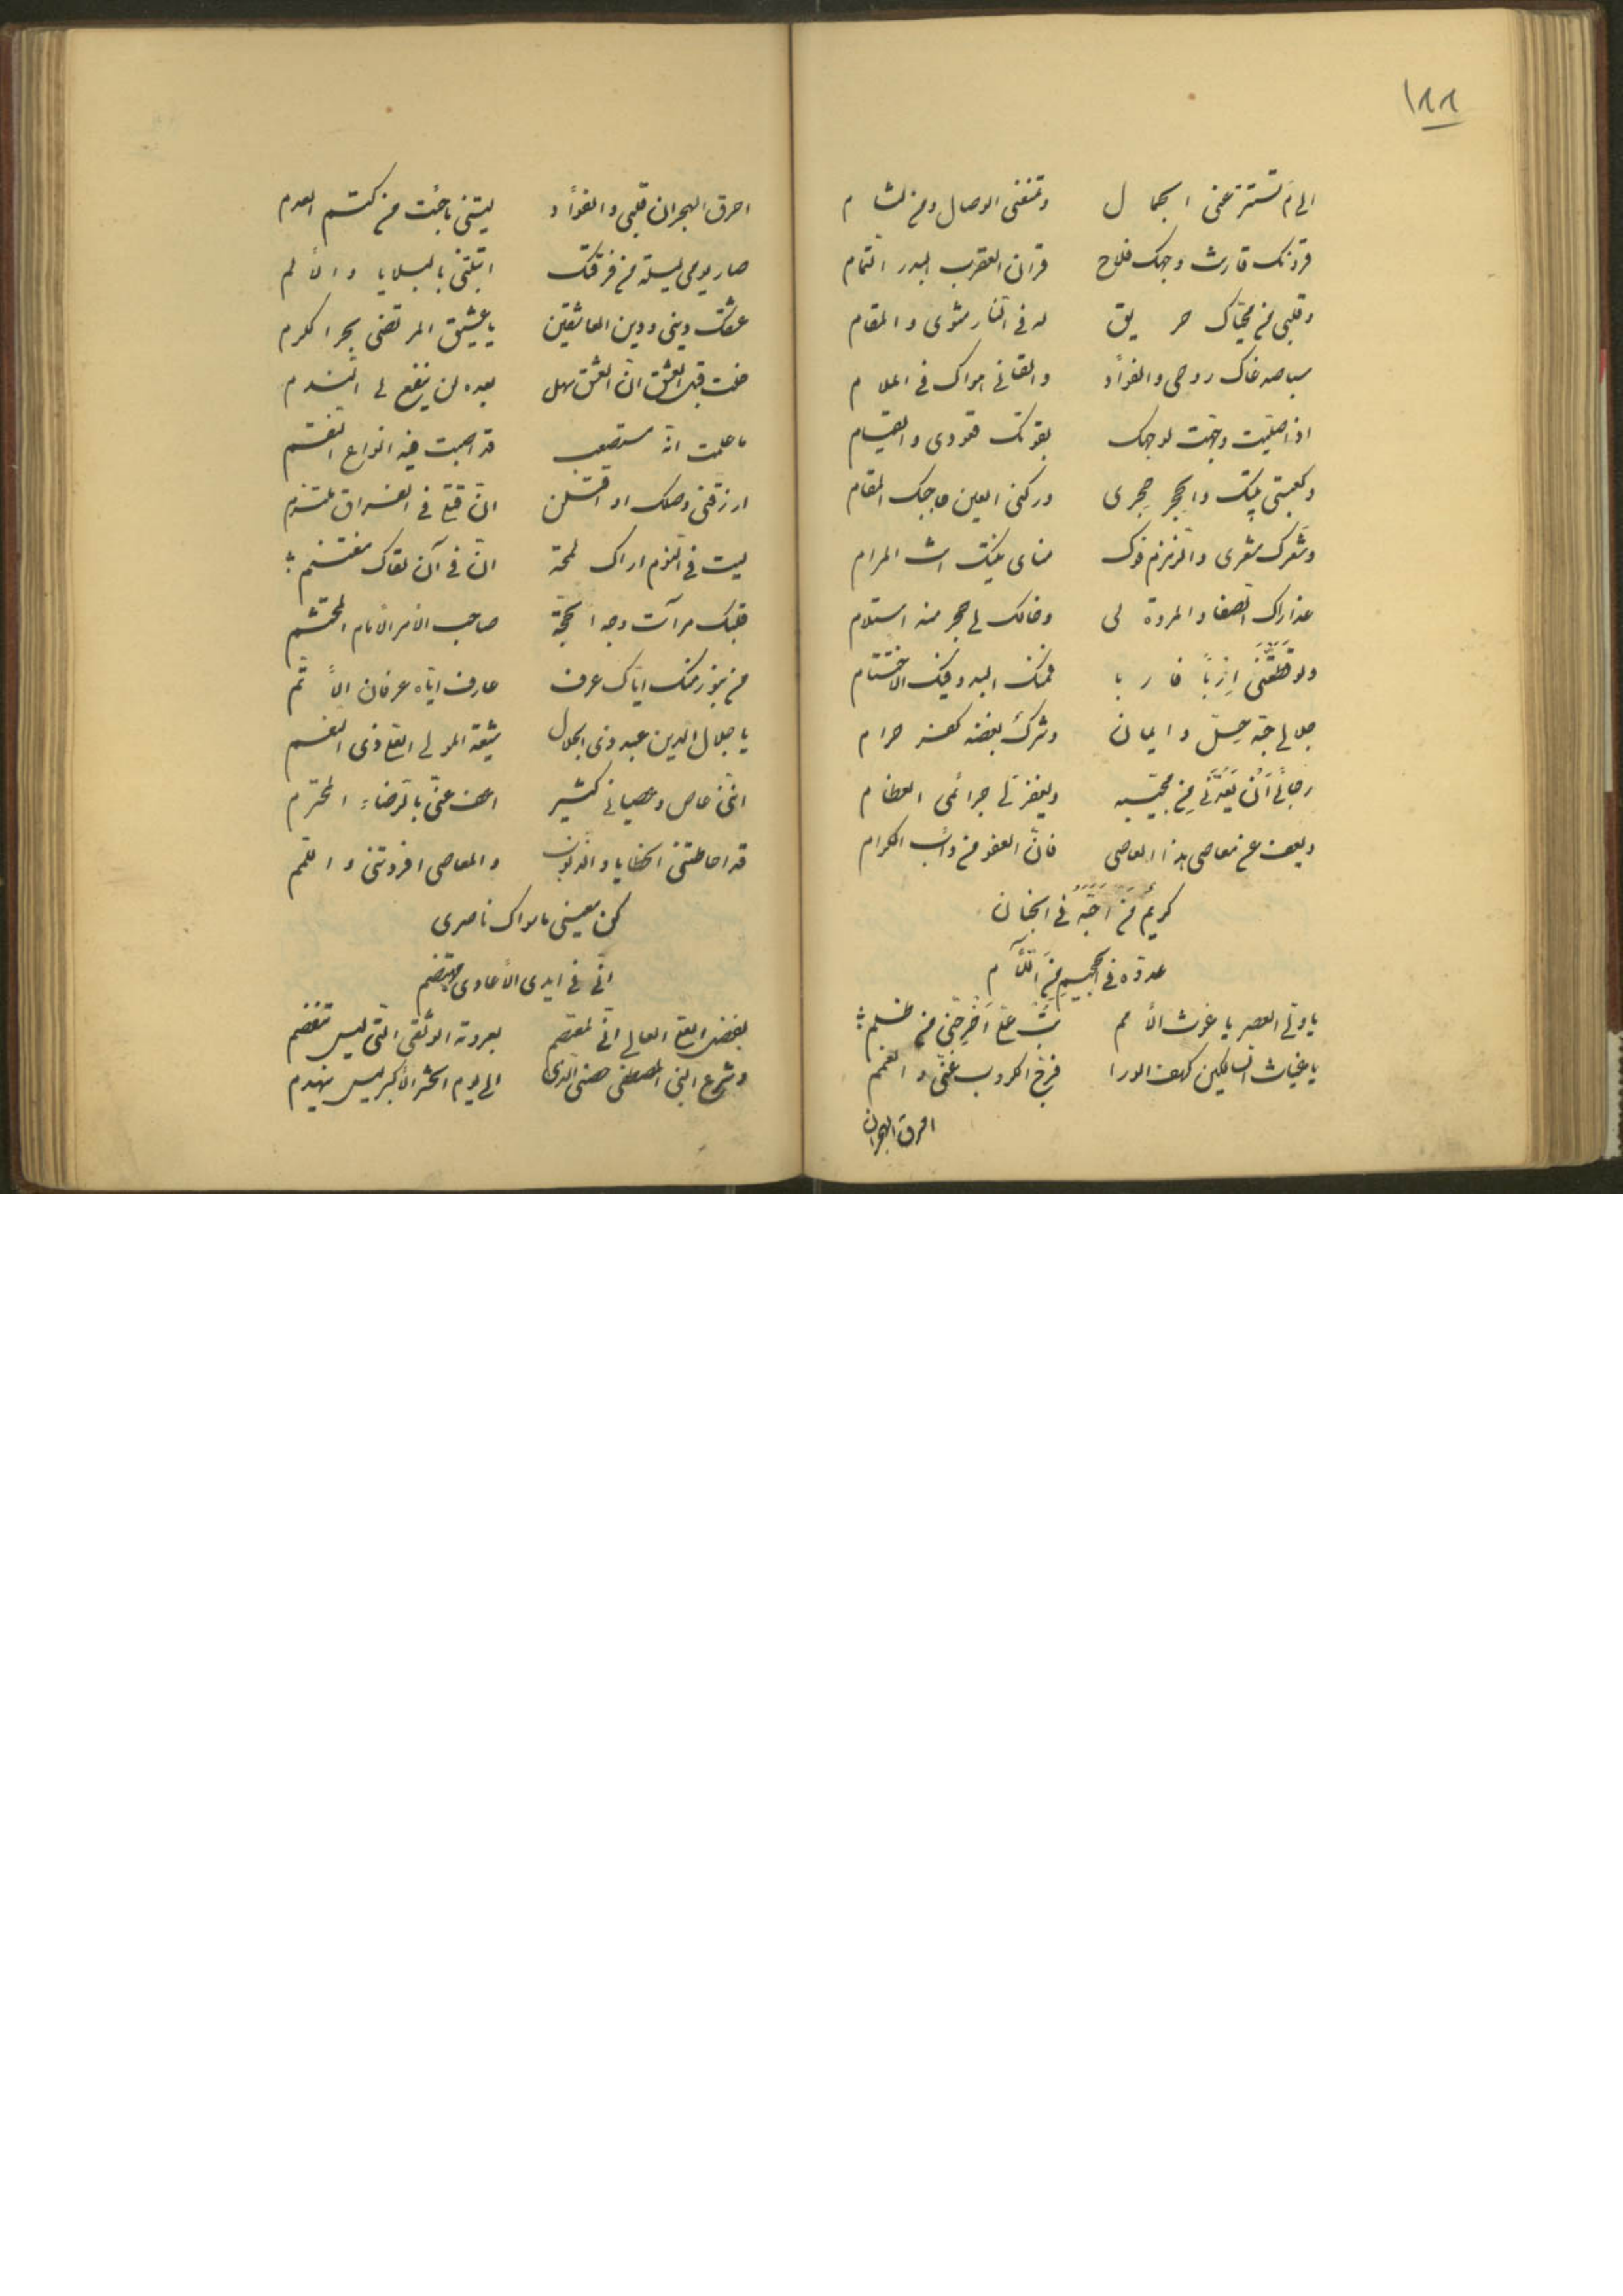 ١٨٨
الی م تستتر عنی الجمال وتمنعنی الوصال ومن لثام
قرونک قارنت وجهک فلاح قران العقرب البدر التمام
وقلبی من محیّاک حریق له فی النار مثوی والمقام
روحی والفؤاد والقانی هواک فی الملام
اذا صلیت وجّهت لوجهک بقوتک قعودی والقیام
وکعبتی بیتک والحجر حجری ورکنی العین حاجبک المقام
وشعرک مشعری والزمزم فوک منای انت المرام
عذارک الصفا والمروة لی وخالک لی حجر منه استلام
ولو قطّعتنی ارباً فاربا فمنک البدو فیک الاختتام
جلالی حبّه حلّ وایمان وشرک بغضه کفر حرام
رجائی أن یعدّنی من محبّیه ویغفر لی جرائمی العظام
ویعف عن معاصی هذا العاصی فانّ العفو من دأب الکرام
کریم من احبّه فی الجنان
عدوّه فی الجحیم من اللّئام
یا ولّی العصر یا غوث الأمم تب علیّ اخرجنی من ظلم
یا غیاث السالکین کهف الورا فرّج الکروب عنّی والغمم
احرق الهجران
احرق الهجران قلبی والفؤاد لیتنی ما جئت من کتم العدم
صار یومی لیلة من فرقتک ابتلتنی بالبلایا والألم
عشقک دینی ودین العاشقین یا عشیق المرتضی بحر الکرم
خلت قبل العشق انّ العشق سهل بعده لن ینفع لی الندم
ما علمت انّه مستصعب قد اصبت فیه انواع النقم
ارزقنی وصلک او اقتلن انّ قتلی فی الفراق ملتزم
لیت فی النوم اراک لمحة انّ فی آن لقاک مغتنم
قلبک مرآت وجه الحجّة صاحب الأمر الأمام المحتشم
من بنور منک ایّاک عرف عارف ایّاه عرفان الأتم
یا جلال الدین عبد ذی الجلال شیعة المولی العلی ذی النعم
اننی عاص وعصیانی کثیر اعف عنّی بالرضاء المحترم
قد احاطتنی الخطایا والذنوب والمعاصی افزونی واللمم
کن معینی ما سواک ناصری
انّی فی ایدی الأعادی مهتضم
بفضل العلی العالی انّی لمعتصم بعروته الوثقی الّتی لیس تنفصم
وشرع النبی المصطفی حصنی الّذی الی یوم الحشر الأکبر لیس ینهدم